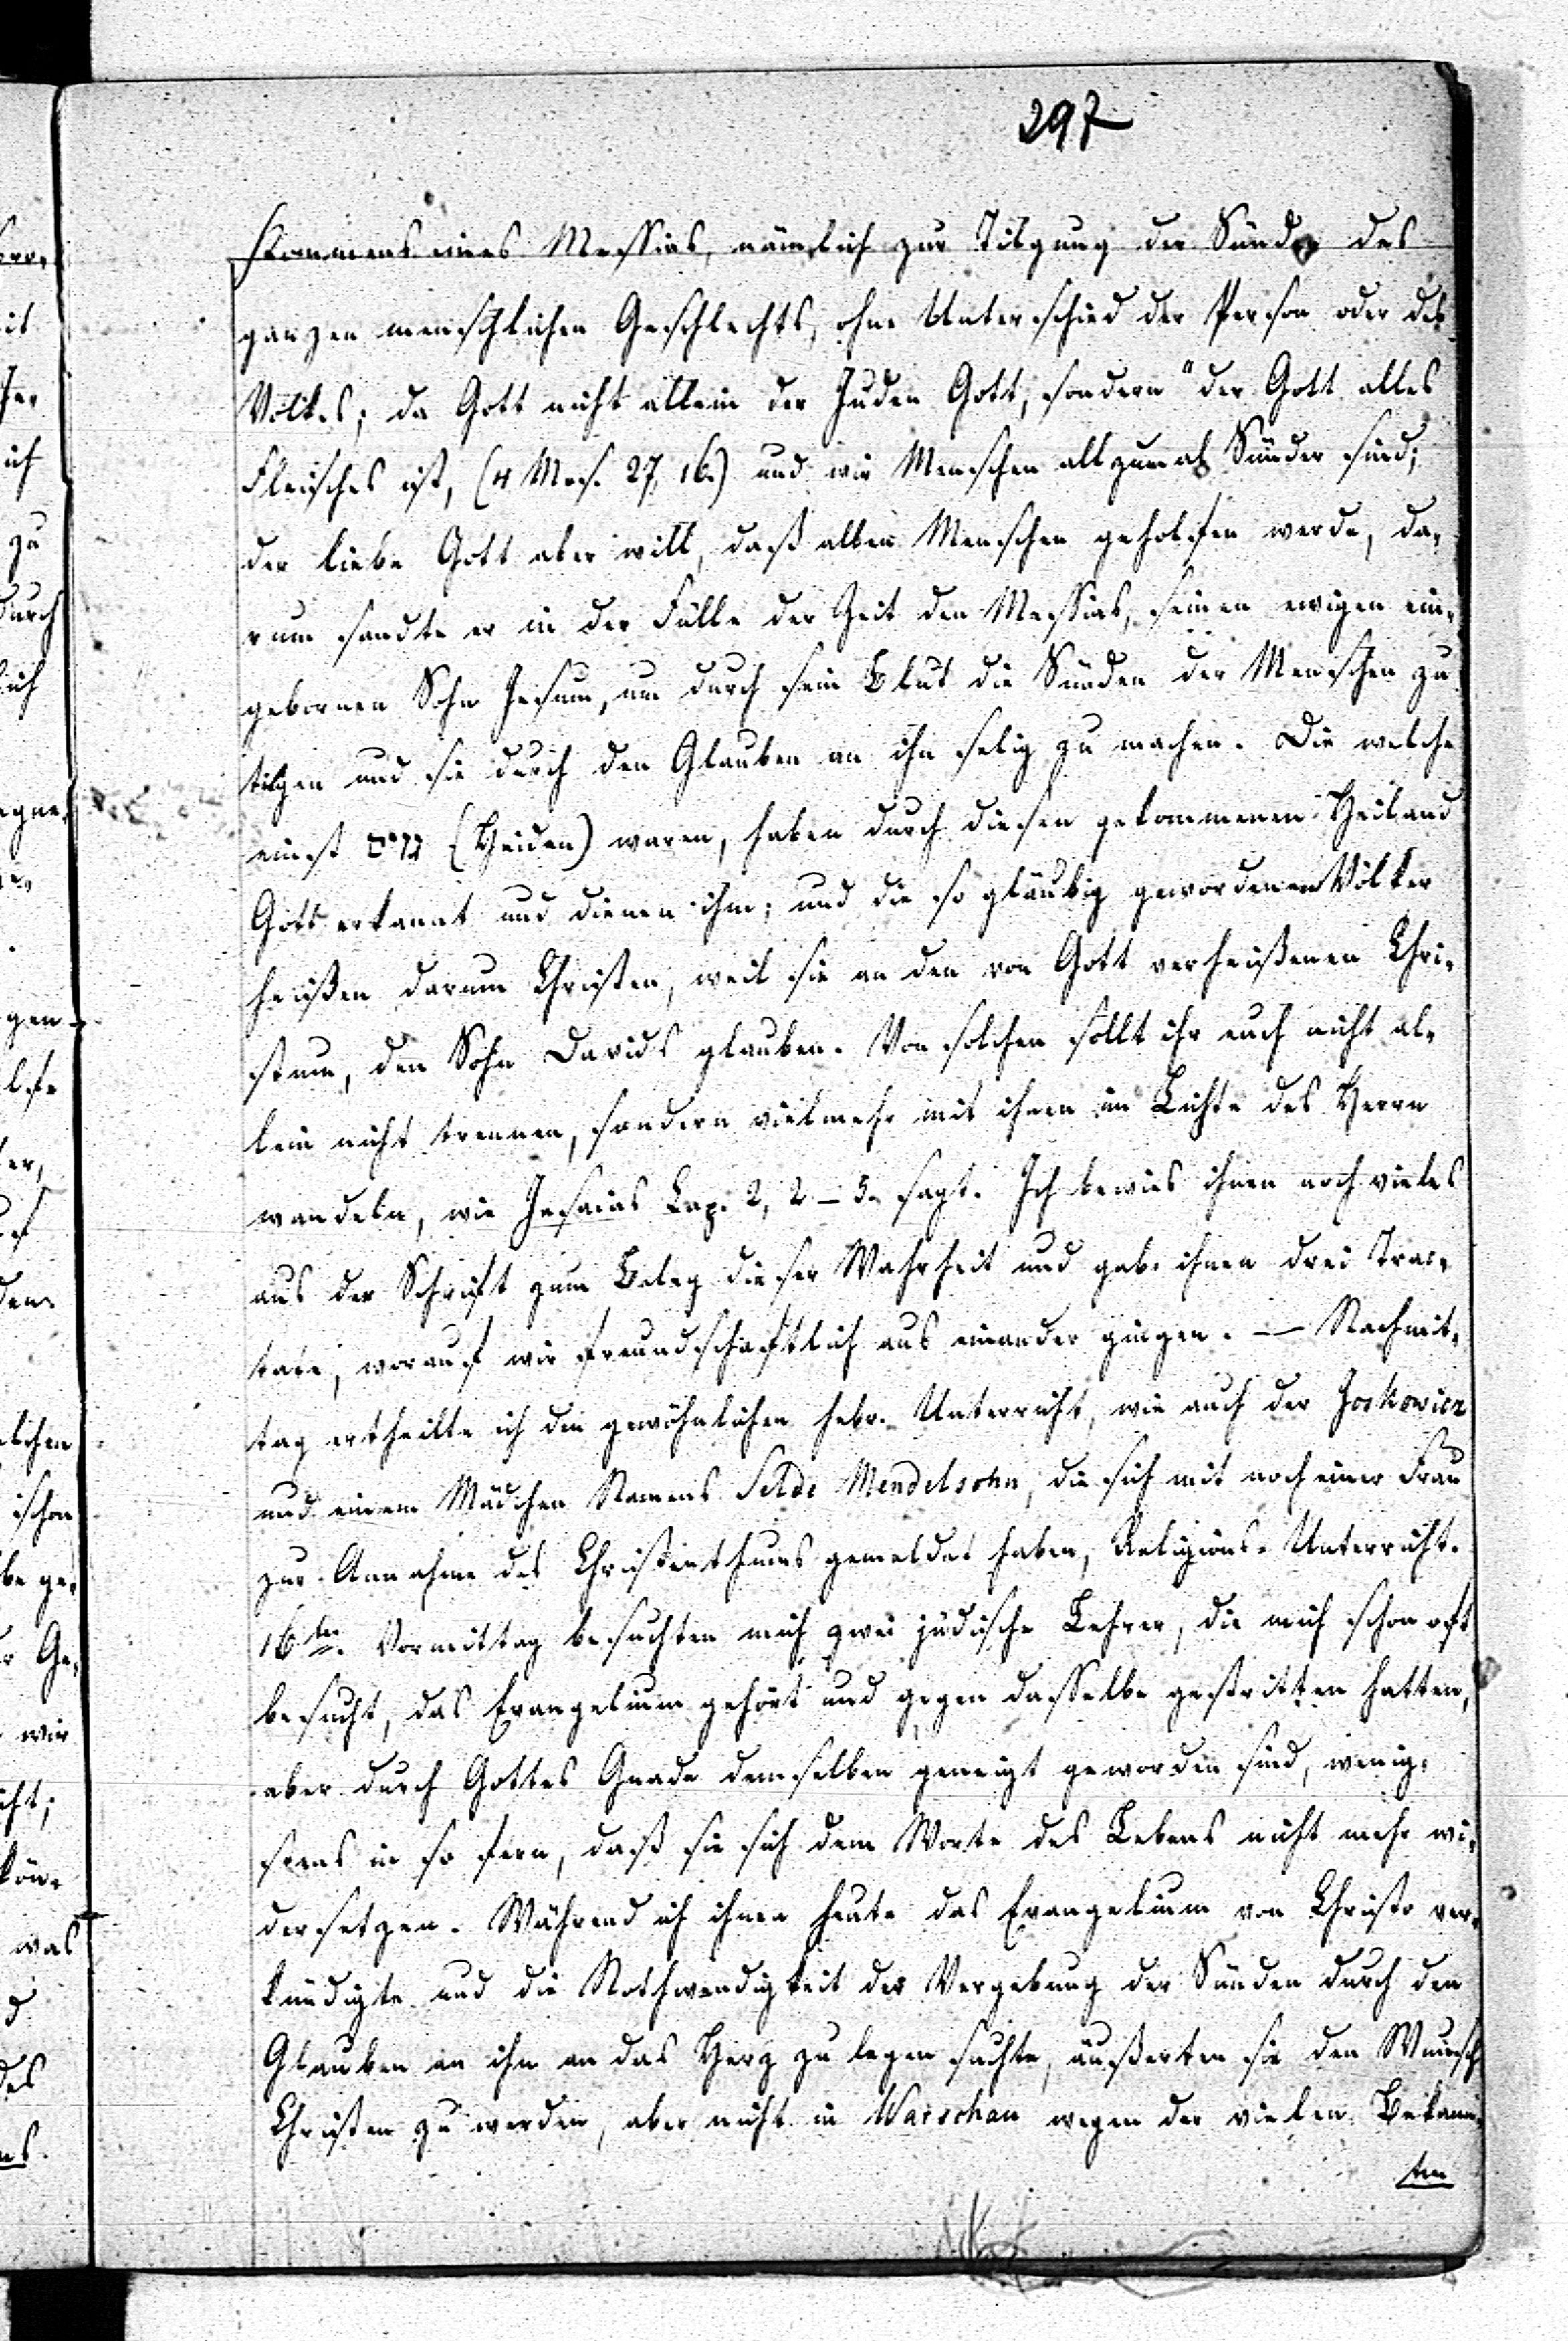 297
Kommens eines Messias, nämlich zur Tilgung der Sünden des
ganzen menschlichen Geschlechts, ohne Unterschied der Person oder des
Volkes; da Gott nicht allein der Juden Gott, sondern "der Gott alles
Fleisches ist, (4 Mos. 27, 16.) und wir Menschen allzumal Sünder sind;
der liebe Gott aber will, daß allen Menschen geholfen werde, da-
rum sandte er in der Fülle der Zeit den Messias, seinen ewigen ein-
gebornen Sohn Jesum, um durch sein Blut die Sünden der Menschen zu
tilgen und sie durch den Glauben an ihn selig zu machen. Die welche
einst גוים (Heiden) waren, haben durch diesen gekommenen Heiland
Gott erkannt und dienen ihm; und die so gläubig gewordenen Völker
heißen darum Christen, weil sie an den von Gott verheißenen Chri-
stum, den Sohn Davids glauben. Von solchen sollt ihr euch nicht al-
lein nicht trennen, sondern vielmehr mit ihnen im Lichte des Herrn
wandeln, wie Jesaias Cap. 2, 2-5. sagt. Ich bewies ihnen noch vieles
aus der Schrift zum Beleg dieser Wahrheit und gab ihnen drei Trac-
tate, worauf wir freundschaftlich aus einander gingen. — Nachmit-
tag ertheilte ich den gewöhnlichen hebr. Unterricht, wie auch der Joskowicz
und einem Mädchen Namens Selde Mendelsohn, die sich mit noch einer Frau
zur Annahme des Christenthums gemeldet haben, Religions-Unterricht.
16ten. Vormittag besuchten mich zwei jüdische Lehrer, die mich schon oft
besucht, das Evangelium gehört und gegen dasselbe gestritten hatten,
aber durch Gottes Gnade demselben geneigt geworden sind, wenig-
stens in so fern, daß sie sich dem Worte des Lebens nicht mehr wi-
dersetzen. Während ich ihnen heute das Evangelium von Christo ver-
kündigte und die Nothwendigkeit der Vergebung der Sünden durch den
Glauben an ihn an das Herz zu legen suchte, äußerten sie den Wunsch
Christen zu werden, aber nicht in Warschau wegen der vielen Bekann-
ten